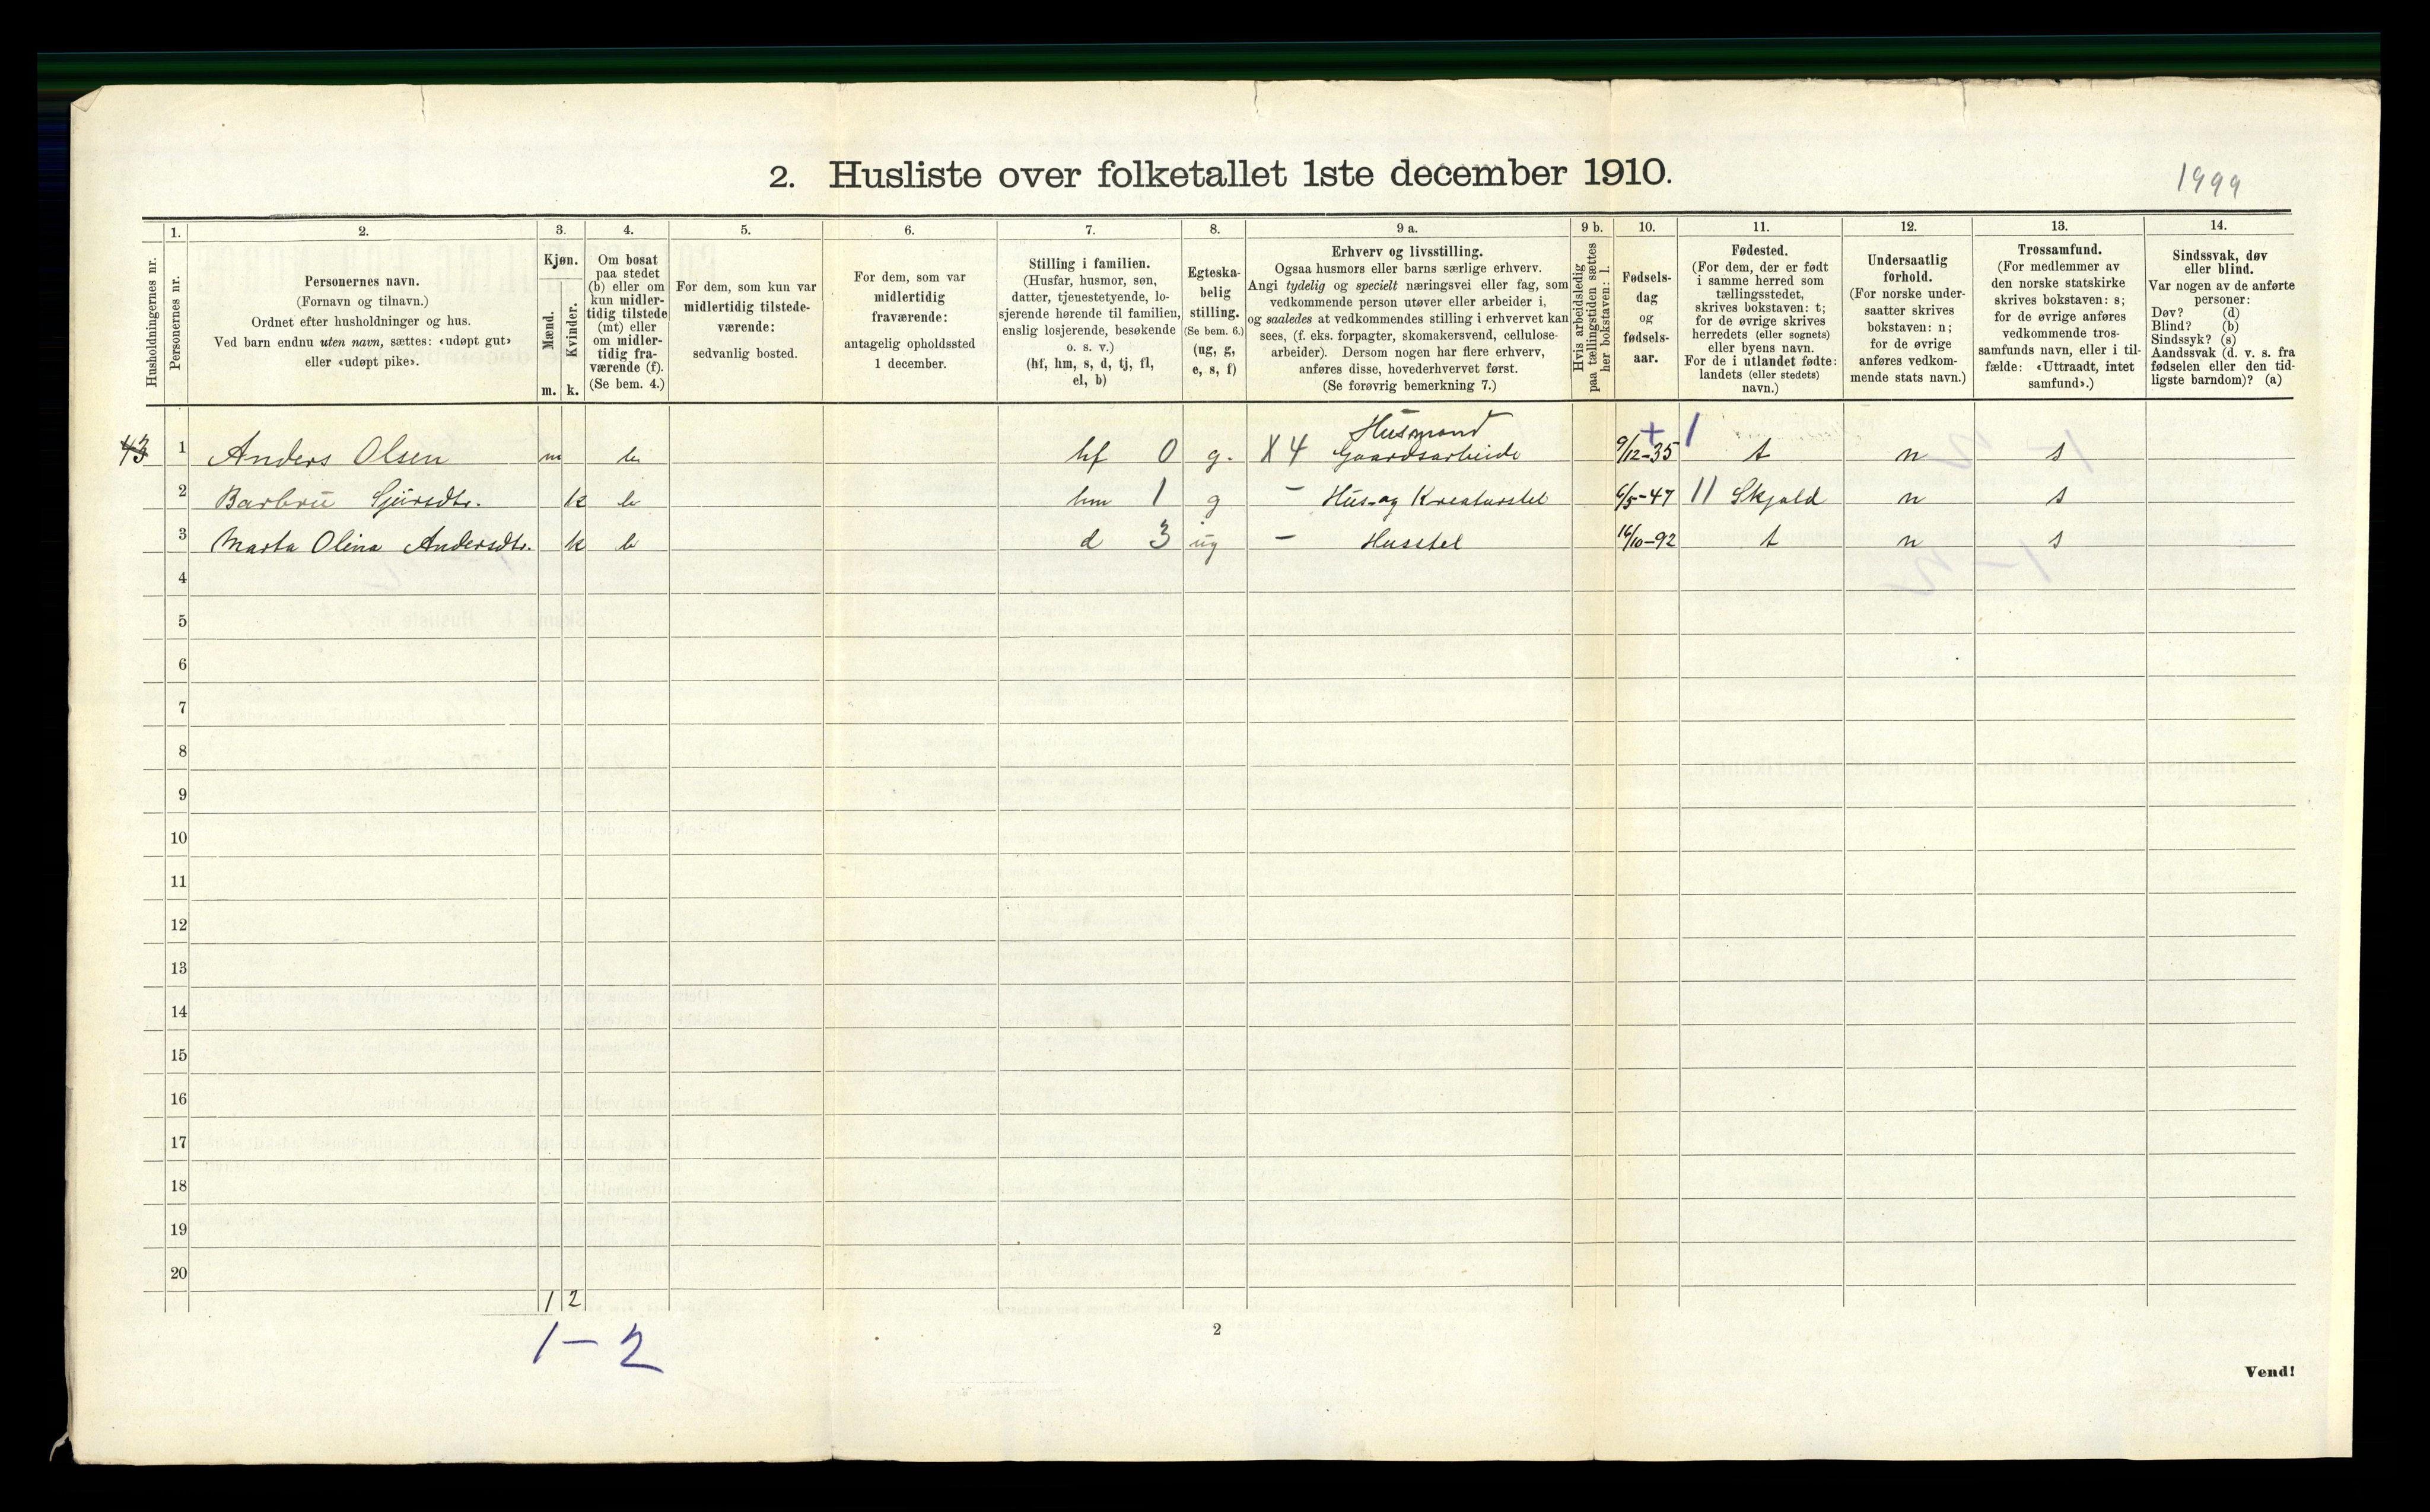 2. Husliste over folketallet 1ste december 1910.
1999
Husholdningernes nr.
1.
Personernes nr.
2.
Personernes navn.
(Fornavn og tilnavn.)
Ordnet efter husholdninger og hus.
Ved barn endnu uten navn, sættes: «udøpt gut»
eller «udøpt pike».
3.
Kjøn.
Mænd.
Kvinder.
m. k.
4.
Om bosat
paa stedet
(b) eller om
kun midler-
tidig tilstede
(mt) eller
om midler-
tidig fra-
værende (f).
(Se bem. 4.)
5.
For dem, som kun var
midlertidig tilstede-
værende:
sedvanlig bosted.
6.
For dem, som var
midlertidig
fraværende:
antagelig opholdssted
1 december.
7.
Stilling i familien.
(Husfar, husmor, søn,
datter, tjenestetyende, lo-
sjerende hørende til familien,
enslig losjerende, besøkende
o. s. v.)
(hf, hm, s, d, tj, fl,
el, b)
8.
Egteska-
belig
stilling.
(Se bem. 6.)
(ug, g,
e, s, f)
9 a.
Erhverv og livsstilling.
Ogsaa husmors eller barns særlige erhverv.
Angi tydelig og specielt næringsvei eller fag, som
vedkommende person utøver eller arbeider i,
og saaledes at vedkommendes stilling i erhvervet kan
sees, (f. eks. forpagter, skomakersvend, cellulose-
arbeider). Dersom nogen har flere erhverv,
anføres disse, hovederhvervet først.
(Se forøvrig bemerkning 7.)
9 b.
Hvis arbeidsledig
paa tællingstiden sættes
her bokstaven: l.
10.
Fødsels-
dag
og
fødsels-
aar.
11.
Fødested.
(For dem, der er født
i samme herred som
tællingsstedet,
skrives bokstaven: t;
for de øvrige skrives
herredets (eller sognets)
eller byens navn.
For de i utlandet fødte:
landets (eller stedets)
navn.)
12.
Undersaatlig
forhold.
(For norske under-
saatter skrives
bokstaven: n;
for de øvrige
anføres vedkom-
mende stats navn.)
13.
Trossamfund.
(For medlemmer av
den norske statskirke
skrives bokstaven: s;
for de øvrige anføres
vedkommende tros-
samfunds navn, eller i til-
fælde: «Uttraadt, intet
samfund».)
14.
Sindssvak, døv
eller blind.
Var nogen av de anførte
personer:
Døv? (d)
Blind? (b)
Sindssyk? (s)
Aandssvak (d. v. s. fra
fødselen eller den tid-
ligste barndom)? (a)
Husmand + 1
1 Anders Olsen m b hf 0 g. X 4 Gaardsarbeide 9/12-35 t n s
2 Barbru Sjursdtr. k b hm 1 g - Hus-og Kreaturstel 6/5-47 11 Skjold n s
3 Marta Olina Andersdtr. k b d 3 ug - Husstel 16/10-92 t n s
4
5
6
7
8
9
10
11
12
13
14
15
16
17
18
19
20
1 2
1-2
2
Vend!